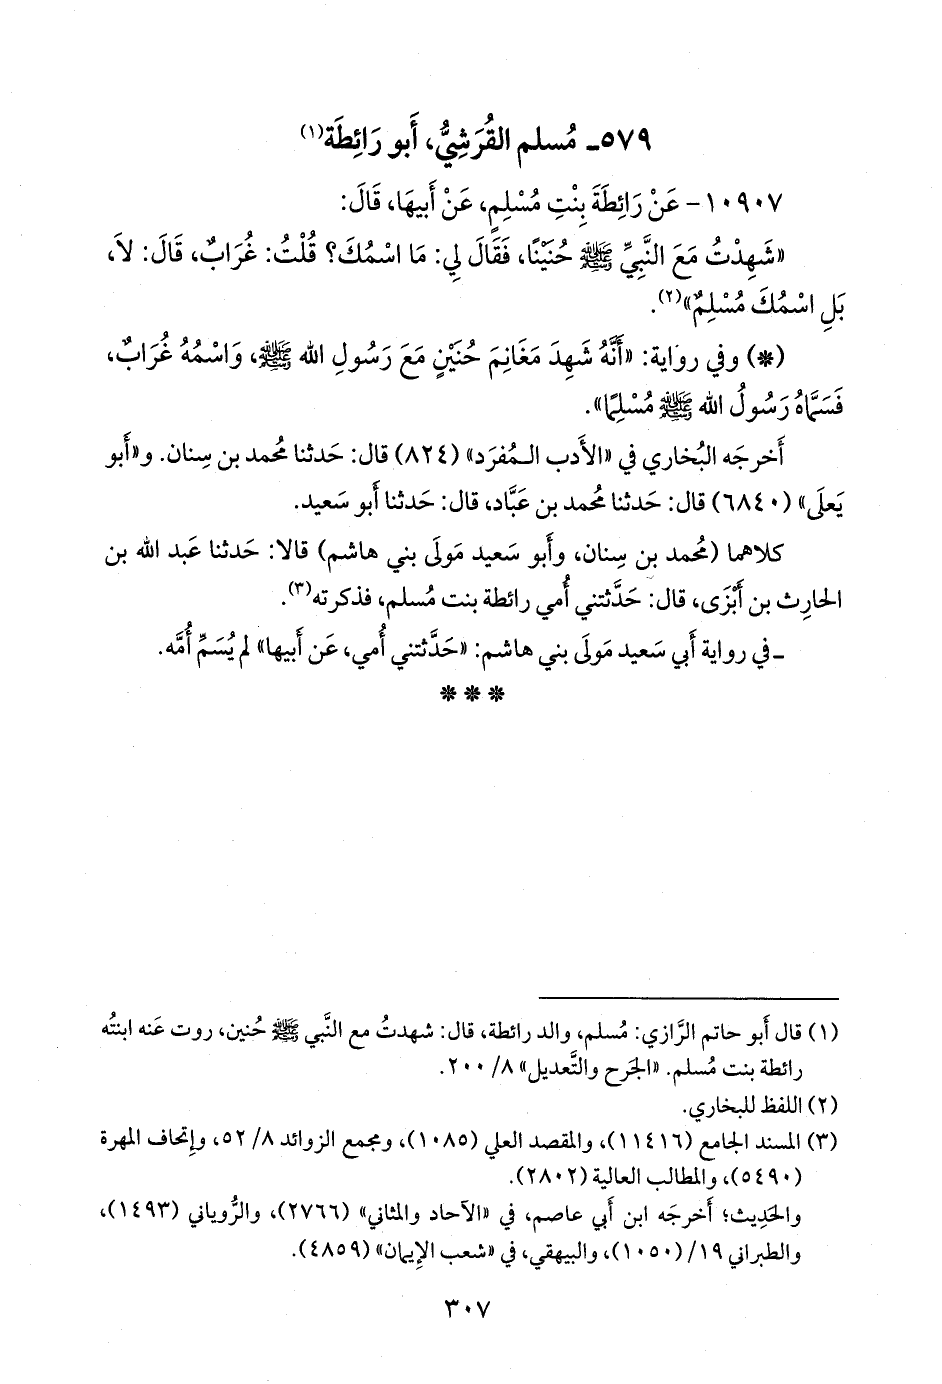 ٥٧٩ـ مُسلم القُرَشِيُّ، أَبو رَائِطَة(١)
١٠٩٠٧- عَنْ رَائِطَةَ بِنْتِ مُسْلِمٍ، عَنْ أَبِيهَا، قَالَ:
«شَهِدْتُ مَعَ النَّبِيِّ ﷺ حُنَيْنًا، فَقَالَ لِي: مَا اسْمُكَ؟ قُلْتُ: غُرَابٌ، قَالَ: لاَ،
بَلِ اسْمُكَ مُسْلِمٌ»(٢).
(*) وفي رواية: «أَنَّهُ شَهِدَ مَغَانِمَ حُنَيْنٍ مَعَ رَسُولِ الله ﷺ، وَاسْمُهُ غُرَابٌ،
فَسَمَّاهُ رَسُولُ الله ﷺ مُسْلِمًا».
أَخرجَه البُخاري في «الأَدب الـمُفرَد» (٨٢٤) قال: حَدثنا محُمد بن سِنان. و«أَبو
يَعلَى» (٦٨٤٠) قال: حَدثنا محُمد بن عَبَّاد، قال: حَدثنا أَبو سَعيد.
كلاهما (محُمد بن سِنان، وأَبو سَعيد مَولَى بني هاشم) قالا: حَدثنا عَبد الله بن
الحارِث بن أَبْزَى، قال: حَدَّثتني أُمي رائطة بنت مُسلم، فذكرته(٣).
ـ في رواية أَبي سَعيد مَولَى بني هاشم: «حَدَّثتني أُمي، عَن أَبيها» لم يُسَمِّ أُمَّه.
* * *
(١) قال أَبو حاتم الرَّازي: مُسلم، والد رائطة، قال: شهدتُ مع النَّبي ﷺ حُنين، روت عَنه ابنتُه
رائطة بنت مُسلم. «الجَرح والتَّعديل» ٨/ ٢٠٠.
(٢) اللفظ للبخاري.
(٣) المسند الجامع (١١٤١٦)، والمقصد العلي (١٠٨٥)، ومجمع الزوائد ٨/ ٥٢، وإتحاف المهرة
(٥٤٩٠)، والمطالب العالية (٢٨٠٢).
والحَدِيث؛ أَخرجَه ابن أَبي عاصم، في «الآحاد والمثاني» (٢٧٦٦)، والرُّوياني (١٤٩٣)،
والطبراني ١٩/ (١٠٥٠)، والبيهقي، في «شعب الإِيمان» (٤٨٥٩).
٣٠٧